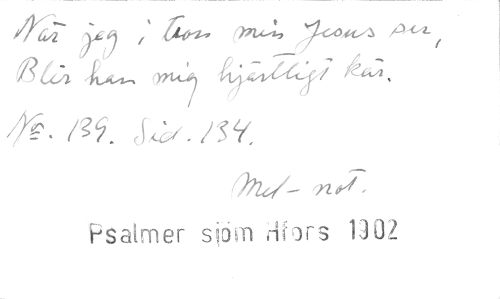 När jag i tron min Jesus ser,
Blir han mig hjärtligt kär.
No. 139. Sid. 134.
Mel-not.
Psalmer sjöm Hfors 1902